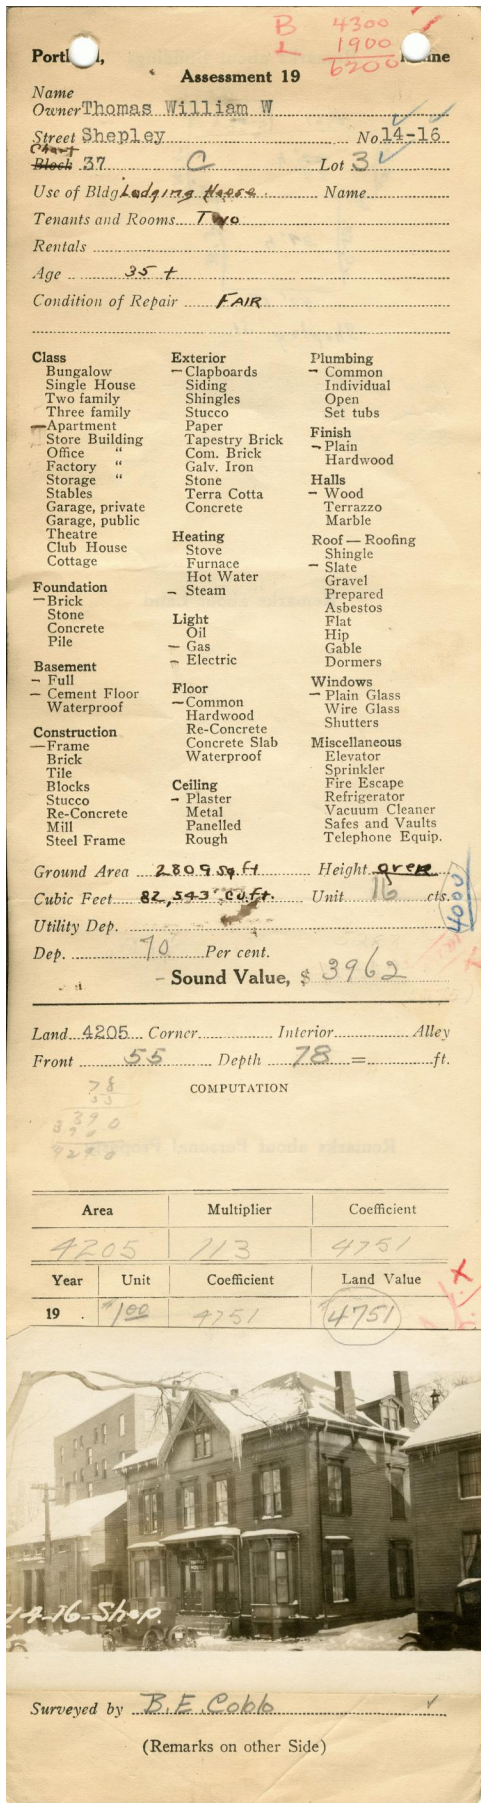 B 4300
L 1900
6200
Assessment 19
Name
Owner Thomas William W
Street Shepley No 14-16
Chart
Block 37 C Lot 3
Use of Bldg Lodging House Name
Tenants and Rooms Two
Rentals
Age 35 +
Condition of Repair FAIR
Class
Bungalow
Single House
Two family
Three family
Apartment
Store Building
Office "
Factory "
Storage "
Stables
Garage, private
Garage, public
Theatre
Club House
Cottage
Foundation
Brick
Stone
Concrete
Pile
Basement
Full
Cement Floor
Waterproof
Construction
Frame
Brick
Tile
Blocks
Stucco
Re-Concrete
Mill
Steel Frame
Exterior
Clapboards
Siding
Shingles
Stucco
Paper
Tapestry Brick
Com. Brick
Galv. Iron
Stone
Terra Cotta
Concrete
Heating
Stove
Furnace
Hot Water
Steam
Light
Oil
Gas
Electric
Floor
Common
Hardwood
Re-Concrete
Concrete Slab
Waterproof
Ceiling
Plaster
Metal
Panelled
Rough
Plumbing
Common
Individual
Open
Set tubs
Finish
Plain
Hardwood
Halls
Wood
Terrazzo
Marble
Roof — Roofing
Shingle
Slate
Gravel
Prepared
Asbestos
Flat
Hip
Gable
Dormers
Windows
Plain Glass
Wire Glass
Shutters
Miscellaneous
Elevator
Sprinkler
Fire Escape
Refrigerator
Vacuum Cleaner
Safes and Vaults
Telephone Equip.
Ground Area 2809 sq. ft Height
Cubic Feet 82,543 cu. ft. Unit 16 cts.
4000
Utility Dep.
Dep. 70 Per cent.
Sound Value, $ 3962
Land 4205 Corner Interior Alley
Front 55 Depth 78 = ft.
COMPUTATION
78
55
390
390
4290
Area Multiplier Coefficient
4205 113 4751
Year Unit Coefficient Land Value
19 . $1.00 4751 $4751
14-16-Shep.
Surveyed by B.E. Cobb
(Remarks on other Side)